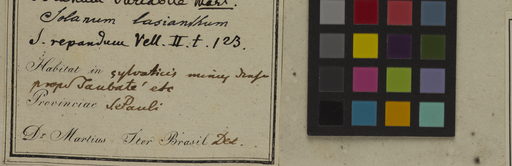 Solanum variabile Mart.
Solanum lasianthum
S. repandum Vell. II. t. 123.
Habitat in sylvaticis minus densis
prope Taubaté etc
Provinciae S. Pauli
Dr. Martius Iter Brasil Dec.